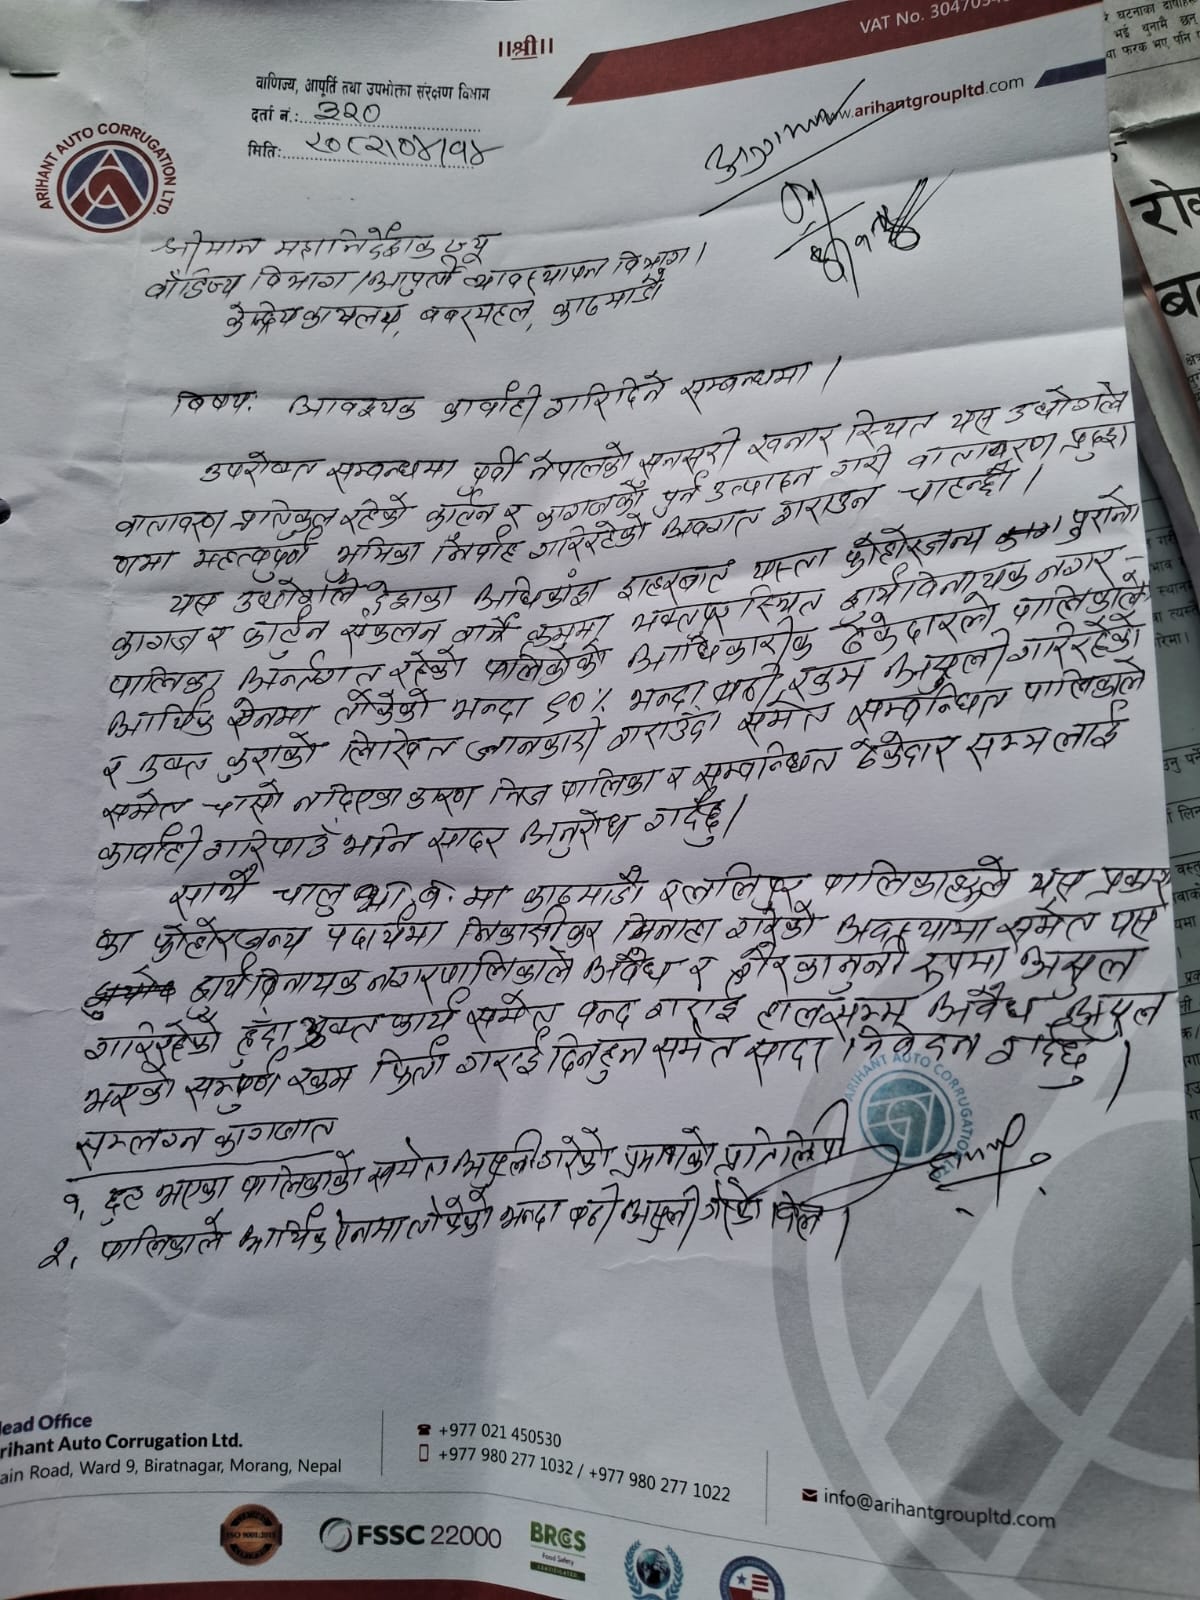 ॥श्री॥
VAT No. 30470
www.arihantgroupltd.com
वाणिज्य, आपूर्ति तथा उपभोक्ता संरक्षण विभाग
दर्ता नं.: ३२०
मिति: २०८२/०४/१४
ARIHANT AUTO CORRUGATION LTD.
श्रीमान महानिर्देशक ज्यू
वाणिज्य विभाग/आपुर्ती व्यवस्थापन विभाग।
केन्द्रिय कार्यलय, बबरमहल, काठमाडौं
विषय: आवश्यक कार्वाही गरिदिने सम्बन्धमा।
उपरोक्त सम्बन्धमा पूर्वी नेपालको सुनसरी खनार स्थित यस उद्योगले
वातावरण प्रतिकुल रहेको कार्टुन र कागजको पुर्न उत्पादन गरी वातावरण प्रदुश
णमा महत्वपुर्ण भुमिका निर्वाह गरिरहेको अवगत गराउन चाहन्छौं।
यस उद्योगले देशका अधिकांश शहरबाट यस्ता फोहोरजन्य पुरानो
कागज र कार्टुन संकलन गर्ने क्रममा भक्तपुर स्थित सुर्यविनायक नगर-
पालिका अर्न्तगत रहेको पालिकाको आधिकारीक ठेकेदारले पालिकाले
आर्थिक ऐनमा तोकेको भन्दा ९०% भन्दा बढी रकम असुली गरिरहेको
र उक्त कुराको लिखित जानकारी गराउँदा समेत सम्बन्धित पालिकाले
समेत चासो नदिएका कारण निज पालिका र सम्वन्धित ठेकेदार सम्मलाई
कार्वाही गरिपाउँ भनि सादर अनुरोध गर्दछु।
साथै चालु आ.व. मा काठमाडौं र ललितपुर पालिकाहरुले यस प्रकार
का फोहोरजन्य पदार्थमा निकासीकर मिनाहा गरेको अवस्थामा समेत यस
सुर्यविनायक नगरपालिकाले अवैध र गैरकानुनी रुपमा असुल
गरिरहेको हुँदा उक्त कार्य समेत बन्द गराई हालसम्म अवैध असुल
भएको सम्पुर्ण रकम फिर्ता गराई दिनुहुन समेत सादर निवेदन गर्दछु।
सम्लग्न कागजात
१. छुट भएका पालिकाको समेत असुली गरेको प्रमाणको प्रतिलिपी
२. पालिकाले आर्थिक ऐनमा तोकेको भन्दा बढी असुली गरेको विल।
ARIHANT AUTO CORRUGATION LTD.
Head Office
Arihant Auto Corrugation Ltd.
Main Road, Ward 9, Biratnagar, Morang, Nepal
+977 021 450530
+977 980 277 1032 / +977 980 277 1022
info@arihantgroupltd.com
ISO 9001:2015
FSSC 22000
BRCGS
Food Safety
CERTIFICATED